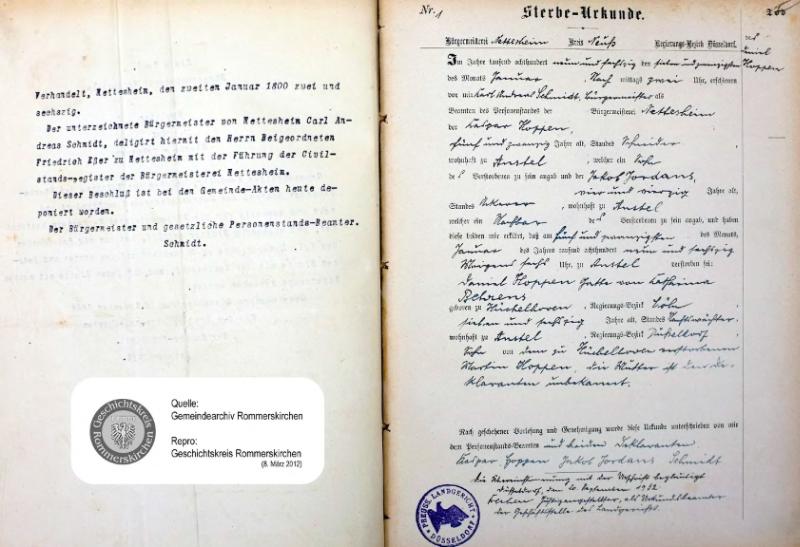 Verhandelt, Nettesheim, den zweiten Januar 1800 zwei und
sechszig.
Der unterzeichnete Bürgermeister von Nettesheim Carl An-
dreas Schmidt, deligirt hiermit den Herrn Beigeordneten
Friedrich Eßer zu Nettesheim mit der Führung der Civil-
stands-register der Bürgermeisterei Nettesheim.
Dieser Beschluß ist bei den Gemeinde-Akten heute de-
poniert worden.
Der Bürgermeister und gesetzliche Personenstands-Beamter.
Schmidt.
GESCHICHTSKREIS ROMMERSKIRCHEN
Quelle:
Gemeindearchiv Rommerskirchen
Repro:
Geschichtskreis Rommerskirchen
(8. März 2012)
Nr. 1
Sterbe-Urkunde.
Bürgermeisterei Nettesheim Kreis Neuß Regierungs-Bezirk Düsseldorf.
des
Daniel
Hoppen
Im Jahre tausend achthundert neun und sechszig den sieben und zwanzigsten
des Monats Januar Nach mittags zwei Uhr, erschienen
vor mir Karl Andreas Schmidt, Bürgermeister als
Beamten des Personenstandes der Bürgermeisterei Nettesheim
der Kaspar Hoppen,
fünf und zwanzig Jahre alt, Standes Schneider
wohnhaft zu Anstel, welcher ein Sohn
des Verstorbenen zu sein angab und der Jakob Jordans,
vier und vierzig Jahre alt,
Standes Ackerer, wohnhaft zu Anstel
welcher ein Nachbar des Verstorbenen zu sein angab, und haben
diese beiden mir erklärt, daß am fünf und zwanzigsten des Monats
Januar des Jahres tausend achthundert neun und sechszig
Morgens sechs Uhr, zu Anstel verstorben sei:
Daniel Hoppen Gatte von Katharina
Behrens
geboren zu Hüchelhoven, Regierungs-Bezirk Köln
sieben und sechszig Jahre alt, Standes Nachtwächter
wohnhaft zu Anstel, Regierungs-Bezirk Düsseldorf
Sohn von dem zu Hüchelhoven verstorbenen
Martin Hoppen, die Mutter ist den De-
klaranten unbekannt.
Nach geschehener Vorlesung und Genehmigung wurde diese Urkunde unterschrieben von mir
dem Personenstands-Beamten und beiden Deklaranten
Kaspar Hoppen Jakob Jordans Schmidt
Die Übereinstimmung mit der Urschrift beglaubigt
Düsseldorf, den September 1932
Justizangestellter, als Urkundsbeamter
der Geschäftsstelle des Landgerichts.
PREUSS. LANDGERICHT
DÜSSELDORF